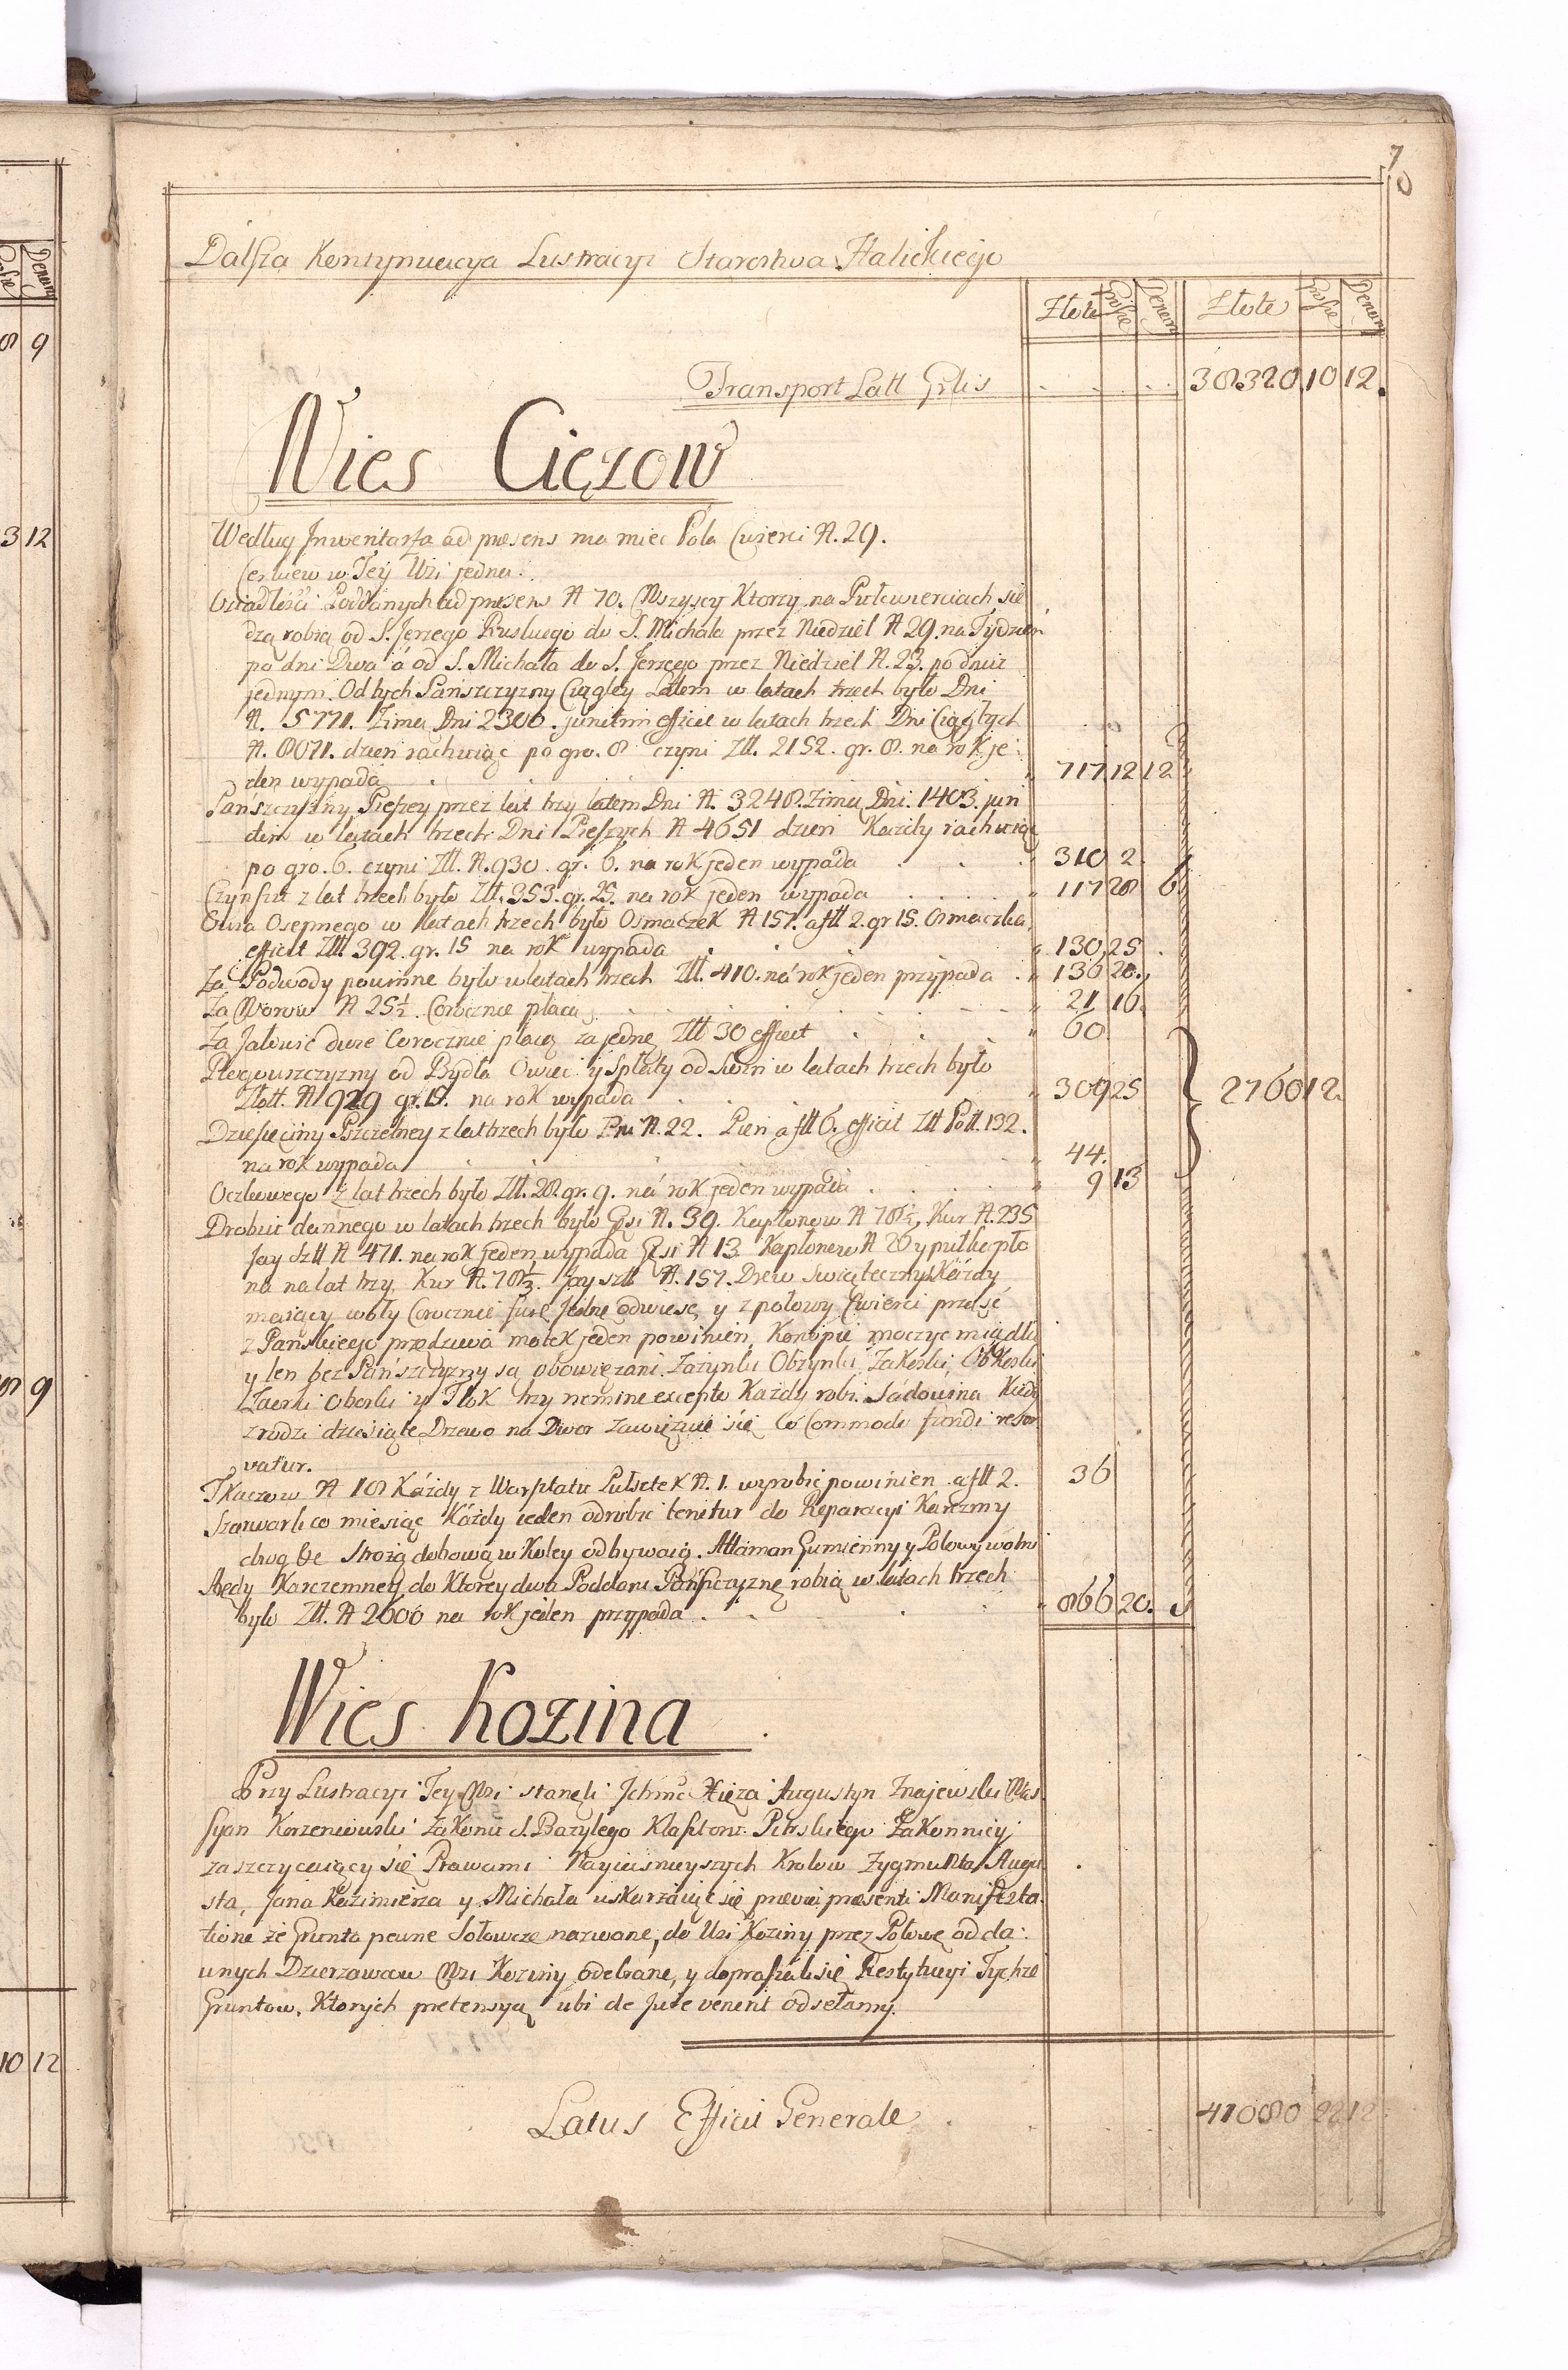 7
8
Dalsza Kontynuacya Lustracyi Starostwa Halickiego
Złote Grosze Denary Złote Grosze Denary
Transport Latt Grlis 38320 10 12.
Wies Ciężow
Według Jnwentarza ad præsens ma miec Pola Cwierci N. 29.
Cerkiew w Tey Wsi jedna.
Osiadłości Poddanych ad præsens N 70. Wszyscy Ktorzy na Pułcwierciach sie
dzą robią od S. Jerzego Ruskiego do S. Michała przez Niedziel N 29. na Tydzien
po dni Dwa a od S. Michała do S. Jerzego przez Niedziel N. 23. po dniu
jednym. Od tych Pańszczyzny Ciągłey Latem w latach trzech było Dni
N. 5771. Zimą Dni 2300. junctim efficit w latach trzech Dni Ciągłych
N. 8071. dzien rachuiąc po gro. 8 czyni Złł. 2152. gr. 8. na rok je:
den wypada 717 12 12
Panszczyzny Pieszey przez lat trzy latem Dni N. 3248. Zimą Dni. 1403. jun
ctim w latach trzech Dni Pieszych N 4651 dzien Każdy rachuiąc
po gro. 6. czyni Złł. N. 930. gr. 6. na rok jeden wypada 310 2.
Czynszu z lat trzech było Złł. 353. gr. 25. na rok jeden wypada 117 28 6
Owsa Osepnego w latach trzech było Osmaczek N 157. a fłł 2. gr 15. Osmaczka
efficit Złł. 392. gr. 15 na rok wypada 130 25
Za Podwody powinne było w latach trzech Złł. 410. na rok jeden przypada 136 20.
Za Worow N 25½. Corocznie płacą 21 16.
Za Jałowic dwie Corocznie płacą za jedną Złł 30 efficit 60.
Rogowszczyzny od Bydła Owiec y Spłaty od Swin w latach trzech było
Złott. N 929 gr. 15. na rok wypada 309 25 2760 12.
Dziesięciny Pszczelney z lat trzech było Pni N. 22. Pień a fłł 6. efficit Złł Poll. 132.
na rok wypada 44.
Oczkowego z lat trzech było Złł. 28. gr. 9. na rok jeden wypada 9 13
Drobiu dannego w latach trzech było Gęsi N. 39. Kapłonow N 78½, Kur N. 235
Jay sztt N 471. na rok jeden wypada Gęsi N 13. Kapłonow N 26 y pułkapło
na na lat trzy. Kur N. 78⅓. Jay sztt N. 157. Drew Swiątecznych Każdy
maiący woły Corocznie furę jednę odwiesć y z połowy Cwierci prząść
z Pańskiego przędziwa motek jeden powinien, Konopie moczyc miądlic
y len bez Pańszczyzny są obowiązani. Zażynki Obzynki Zakoski Obkoski
Zaorki Oborki y Tłok trzy nemine excepto Każdy robi. Sadowina Kiedy
zrodzi dziesiąte Drzewo na Dwor zawiązuie się Co Commodo fundi reser
vatur.
Tkaczow N 18 Każdy z Warsztatu Pułsetek N. 1. wyrobic powinien a fłł 2. 36
Szarwarki co miesiąc Każdy jeden odrobic tenetur do Reparacyi Karczmy
drog &c Strożą dobową w Koley odbywaią. Attaman Gumienny y Polowy wolni
Arędy Karczemney do Ktorey dwa Poddani Pańszczyznę robią w latach trzech
było Złł. N 2600 na rok jeden przypada 866 20.
Wies Kozina
Przy Lustracyi Tey Wsi stanęli Jchmć Xięża Augustyn Znajewski Was
syan Korzeniowski Zakonu S. Bazylego Klasztoru Pitrskiego Zakonnicy
zaszczycaiący się Prawami Nayiasnieyszych Krolow Zygmunta Augu
sta, Jana Kazimierza y Michała uskarzaiąc się prævia præsenti Manifesta
tione że Grunta pewne Sołowcze nazwane, do Wsi Koziny przez Połowę od da:
wnych Dzierzawcow Wsi Koziny odebrane, y dopraszali się Restytucyi Tychże
Gruntow, Ktorych pretensyą ubi de Jure venerit odsełamy.
Latus Efficit Generale 41080 22 12